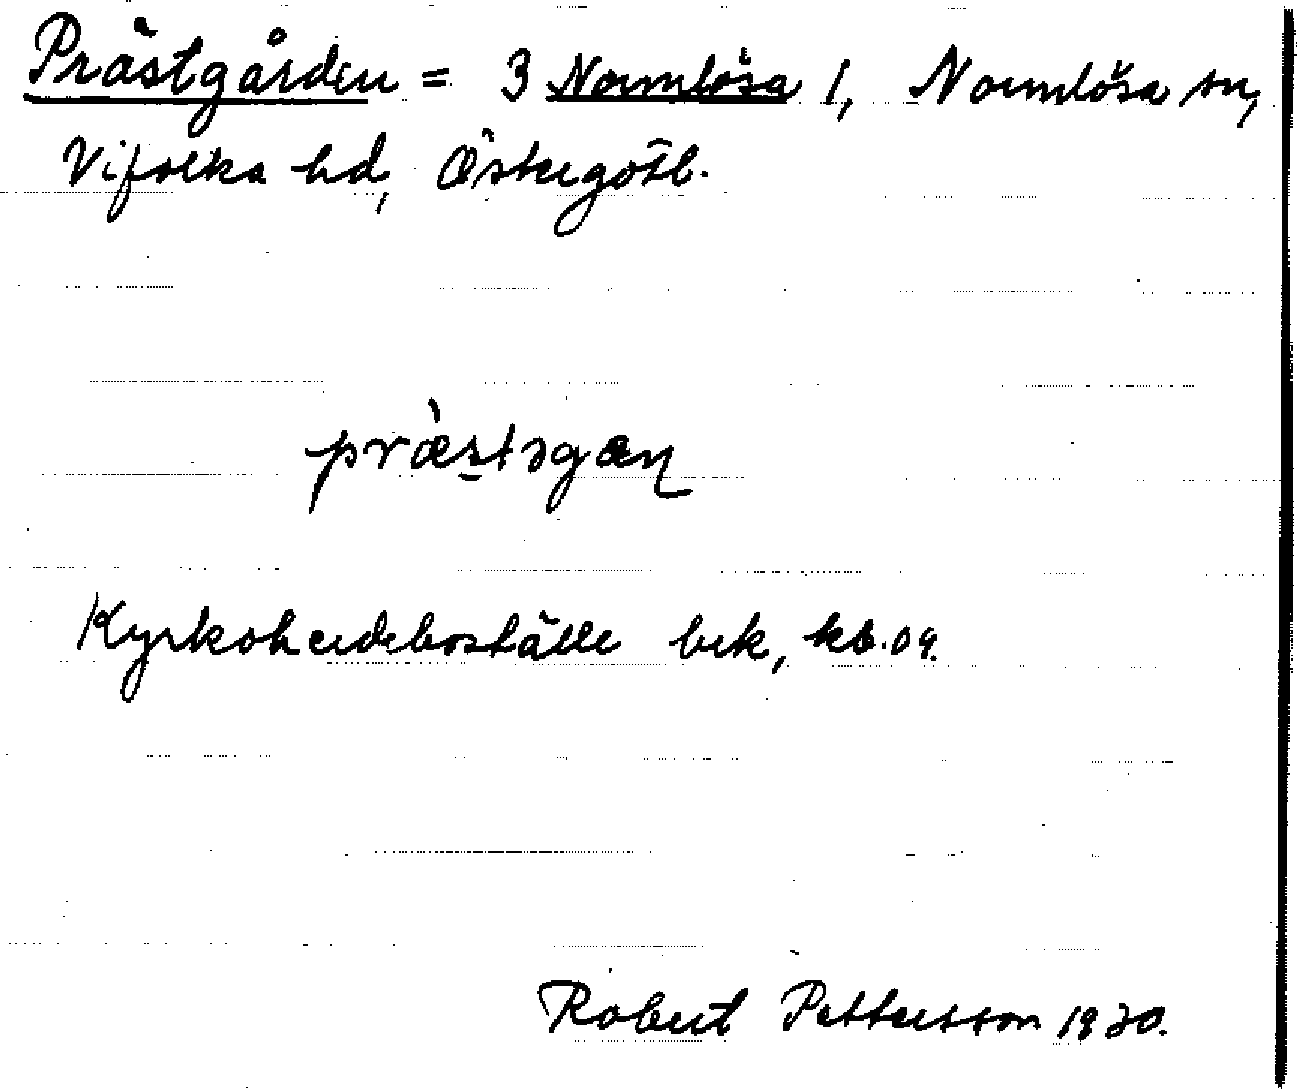 Prästgården = 3 Normlösa 1, Normlösa sn,
Vifolka hd, Östergötl.
præ̀stəgaɳ
Kyrkoherdeboställe bek, kb.09.
Robert Pettersson 1930.